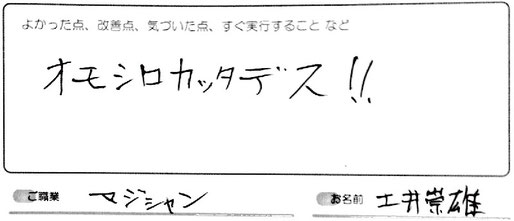 よかった点、改善点、気づいた点、すぐ実行すること など
オモシロカッタデス!!
ご職業 マジシャン お名前 土井崇雄